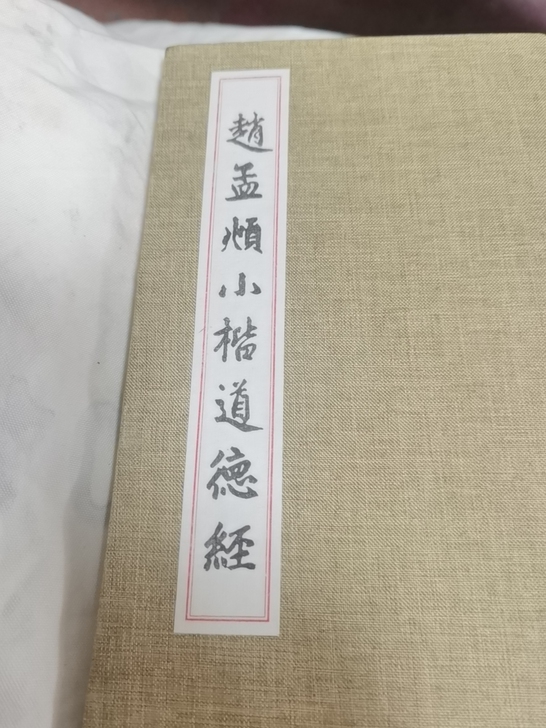 趙孟頫小楷道德經